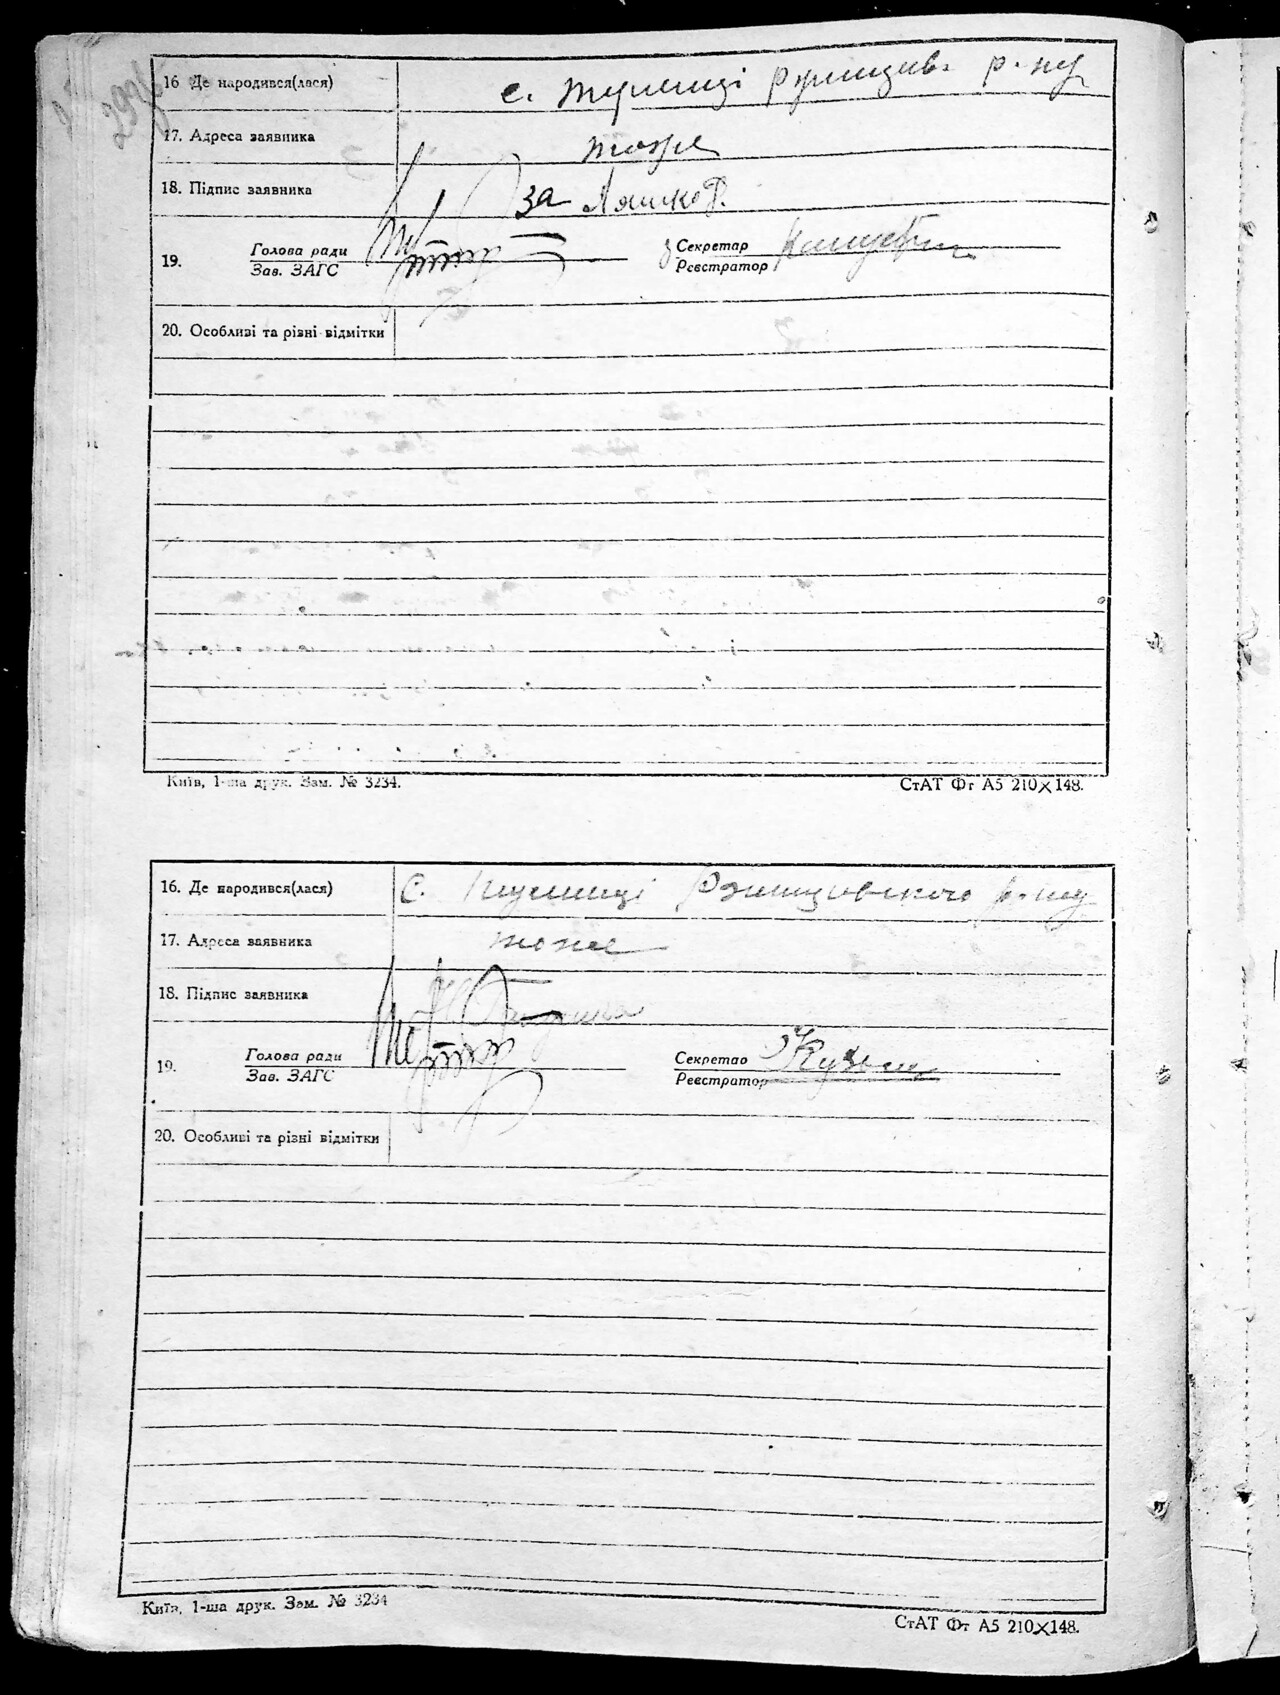 16 Де народився(лася) с. Тулинці Ржищів. р-ну
17. Адреса заявника тоже
18. Підпис заявника за Ляшко
19. Голова ради Секретар
Зав. ЗАГС Реєстратор
20. Особливі та різні відмітки
Київ, 1-ша друк. Зам. № 3234. СтАТ Фг А5 210×148.
16. Де народився(лася) С. Тулинці Ржищівського р-ну
17. Адреса заявника тоже
18. Підпис заявника
19. Голова ради Секретар
Зав. ЗАГС Реєстратор
20. Особливі та різні відмітки
Київ, 1-ша друк. Зам. № 3234 СтАТ Фт А5 210×148.